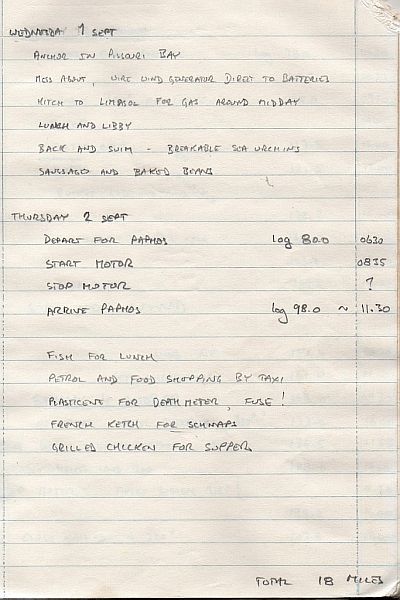 WEDNESDAY 1 SEPT
ANCHOR IN PISSOURI BAY
MESS ABOUT, WIRE WIND GENERATOR DIRECT TO BATTERIES
HITCH TO LIMASOL FOR GAS AROUND MIDDAY
LUNCH AND LIBBY
BACK AND SWIM - BREAKABLE SEA URCHINS
SAUSSAGE AND BAKED BEANS
THURSDAY 2 SEPT
DEPART FOR PAPHOS log 80.0 0630
START MOTOR 0835
STOP MOTOR ?
ARRIVE PAPHOS log 98.0 ~ 11.30
FISH FOR LUNCH
PETROL AND FOOD SHOPPING BY TAXI
FOR DEPTHMETER, FUSE!
FRENCH KETCH FOR SCHNAPS
GRILLED CHICKEN FOR SUPPER
TOTAL 18 MILES